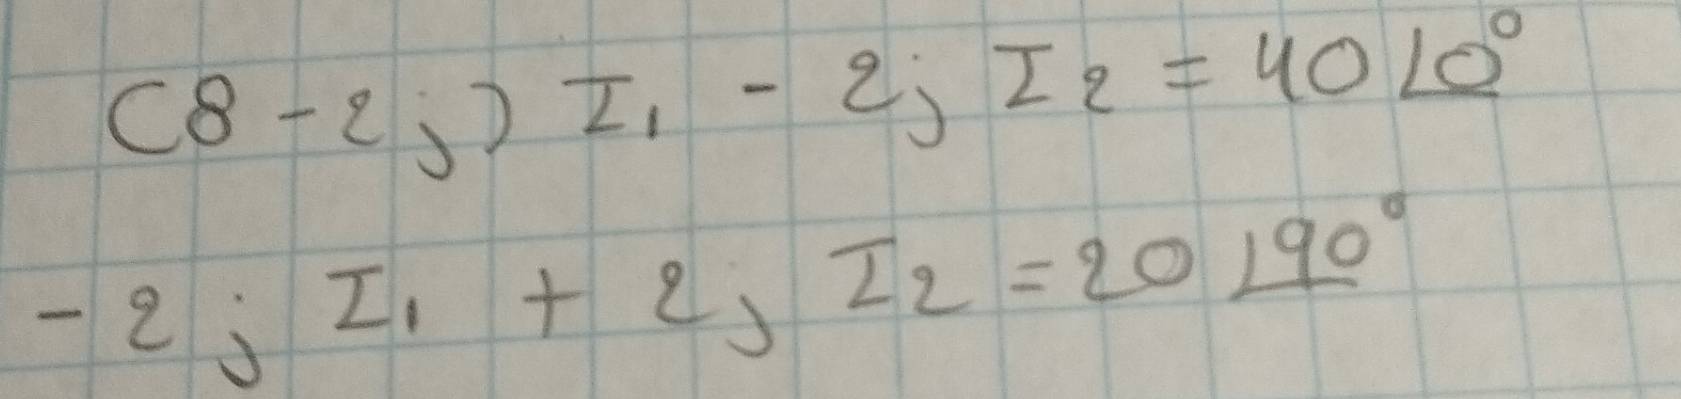 (8-2j) I₁ - 2j I₂ = 40∠0°
-2j I₁ + 2j I₂ = 20∠90°